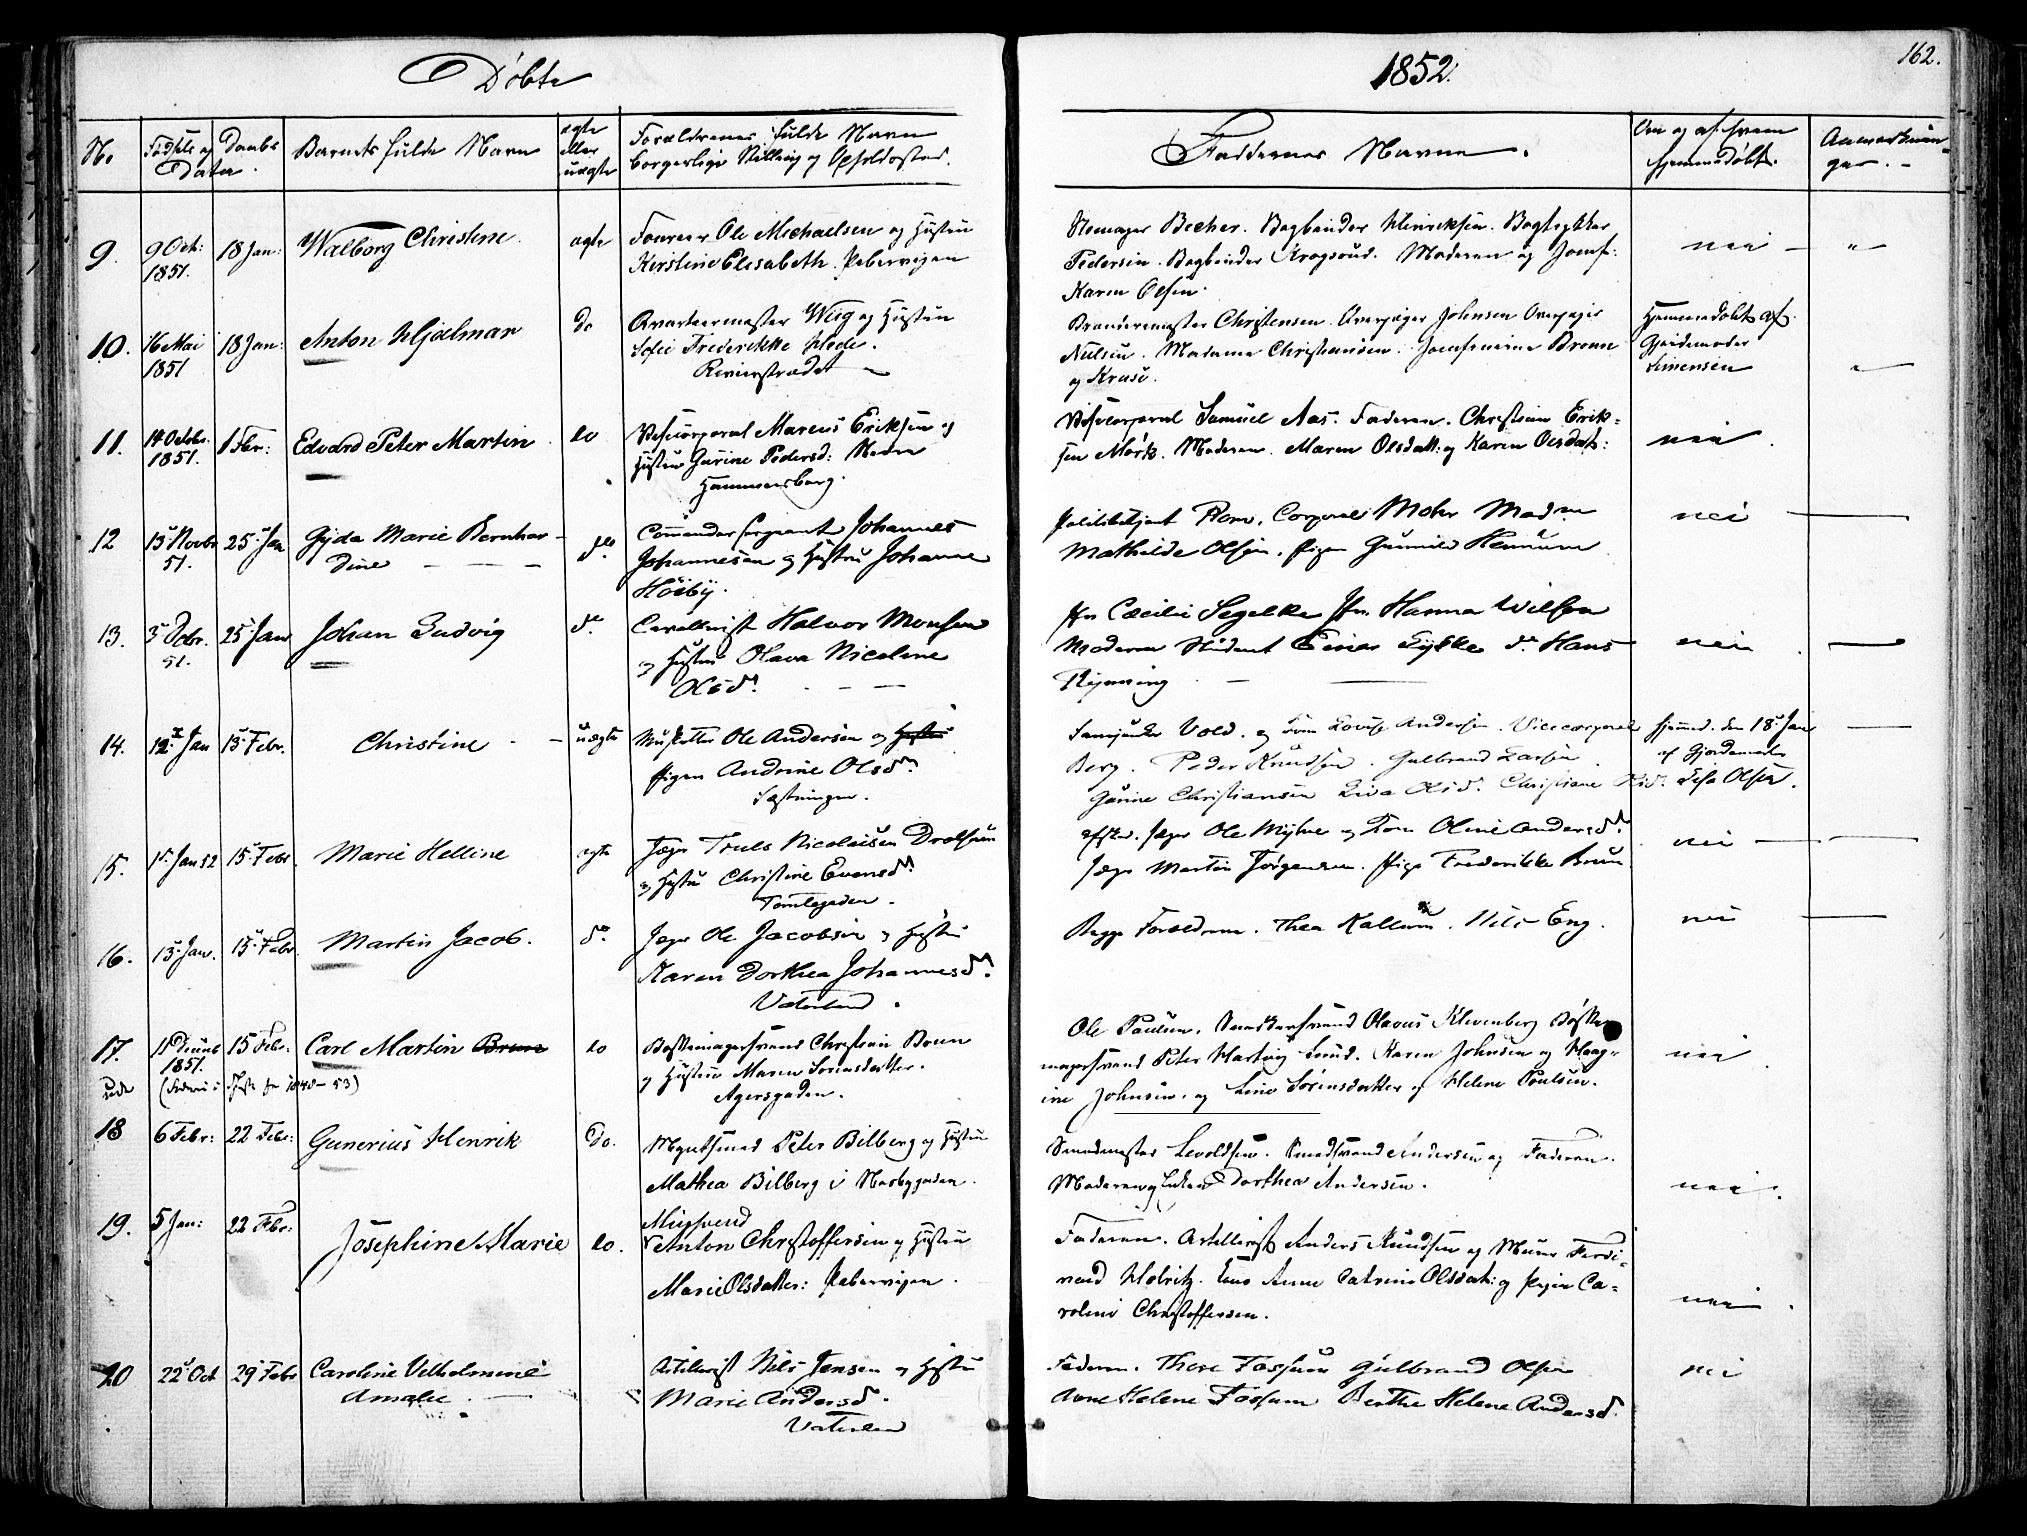 Döbte
1852.
162.
No
Fødsels og Daabs
Data.
Barnets fulde Navn
ægte
eller
uægte
Forældrenes fulde Navn
borgerlige Stilling og Opholdssted.
Faddernes Navne.
Om og af hvem
hjemmedøbt.
Anmærknin-
ger. -
9. 9 Oct: 1851. 18 Jan: Walborg Christine. ægte
Fourer Ole Michaelsen og Hustru
Kerstine Elisabeth. Pebervigen
Becher. Bogbinder Henriksen. Bogtrykker
Pedersen. Bogbinder Krogsrud. Moderen og Jomf:
Karen Olsen.
nei - "
10. 16 Mai 1851 18 Jan: Anton Hjalmar do
Qvarteermester Wiig og Hustru
Sofie Frederikke Hode.
Revierstrædet
Brandermester Christensen. Overjæger Johnsen Overjæger
Nielsen. Madame Christiansen. Jomfruerne Brown
og Kruse.
Hjemmedøbt af
Gjordemoder
Simensen "
11. 14 Octobr. 1851. 1 Febr: Edvard Peter Martin do
Vicecorporal Marcus Eriksen og
Hustru Gurine Pedersd:
Hammersborg.
Vicecorporal Samuel Aas. Faderen. Christian Erik-
sen Mörk. Moderen. Maren Olsdatt: og Karen Olsdatt:
nei
12 13 Novbr 51. 25 Jan Gyda Marie Bernhar-
dine do
Commandersergeant Johannes
Johannesen og Hustru Johanne
Höiby.
Politibetjent Corporal Mohr Madm
Mathilde Olsen. Pigen Gunild
nei
13. 3 Debr. 51. 25 Jan Johan Ludvig do
Cavallerist Halvor Monsen
og Hustru Olava Nicoline
Olsd.
Cæcilie Segelke Hanna Wilson
Moderen Student Einar Lykke do Hans
nei
14. 12 Jan 15 Febr. Christine - uægte
Musketter Ole Andersen og
Pigen Andrine Olsd.
Fæstningen.
Vold. og Lovise Andersen. Vicecorporal
Berg. Peder Knudsen. Gulbrand Larsen
Gurine Christiansen Olsd. Christiane Olsd.
hjemmed. den 18 Jan
af Gjordemoder
Lisa Olsen.
15. 1 Jan 52 15 Febr Marie Helline ægte
Jæger Truls Nicolaisen Drolsum
og Hustru Christine Evensd.
Tomtegaden.
Jæger Ole Myhre og Kone Oline Andersd.
Jæger Martin Jörgensen. Pige Frederikke Brun
nei
16. 13 Jan. 15 Febr. Martin Jacob. do
Jæger Ole Jacobsen og Hustru
Karen Dorthea Johannesd.
Vaterland.
Begge Forældrene. Thea Kallum. Nils Eng.
nei
17. 11 Decemb 1851. 15 Febr. Carl Martin Brun do
Bøssemagersvend Christian Brun
og Hustru Maren Sørensdatter.
Agersgaden.
Ole Paulsen. Snedkersvend Olavus Klevenberg Bøsse-
magersvend Peter Hartvig Lund. Karen Johnsen og Maag-
ine Johnsen. og Line Sörensdatter og Helene Poulsen.
nei
18 6 Febr: 22 Febr: Gunerius Henrik do.
Peter Bilberg og Hustru
Mathea Bilberg i Norbygaden.
Smedmester Levoldsen. Smedsvend Andersen og Faderen.
Moderen og Dorthea Andersen.
nei.
19. 5 Jan: 22 Febr: Josephine Marie do.
Muursvend
Anton Christoffersen og Hustru
Marie Olsdatter: Pebervigen.
Faderen. Artillerist Anders Knudsen og Muurs. Ferdi-
nand Anne Catrine Olsdatt: og Pigen Ca-
roline Christoffersen.
nei.
20 22 Oct 29 Febr Caroline Velhelmine
Amalie
Artillerist Nils Jensen og Hustru
Marie Andersd.
Vaterland
Faderen. Thore Fossum Gulbrand Olsen
Anne Helene Fossum Berthe Helene Andersd.
nei